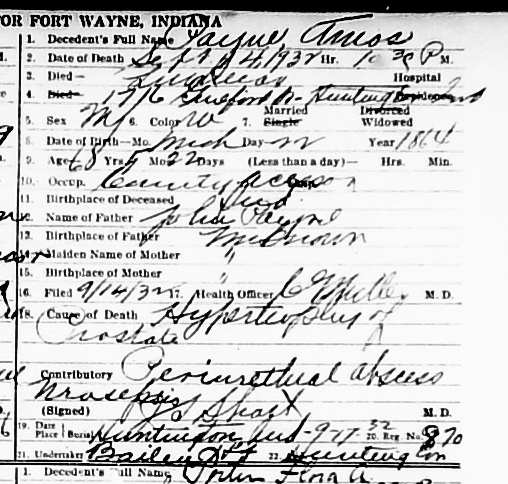 FOR FORT WAYNE, INDIANA
1. Decedent's Full Name Payne Amos
2. Date of Death Sept 14, 1932 Hr. 10 30 P M.
3. Died— Lutheran Hospital
4. Died— 1716 Guilford St Huntington Ind Residence
5. Sex M 6. Color W 7. Single Married Divorced Widowed
8. Date of Birth—Mo. Mch Day 22 Year 1864
9. Age 68 Yrs Mo 22 Days (Less than a day)— Hrs. Min.
10. Occup. County Assessor
11. Birthplace of Deceased Ind.
12. Name of Father John Payne
13. Birthplace of Father Unknown
14. Maiden Name of Mother "
15. Birthplace of Mother "
16. Filed 9/14/32 17. Health Officer M. D.
18. Cause of Death Hypertrophy of
Prostate
Contributory Periurethral abscess
Urosepsis
(Signed) M. D.
19. Date Place (Burial) Huntington Ind-9-17-32 20. Reg. No. 870
21. Undertaker Bailey 22. Huntington
1. Decedent's Full Name, Flora A